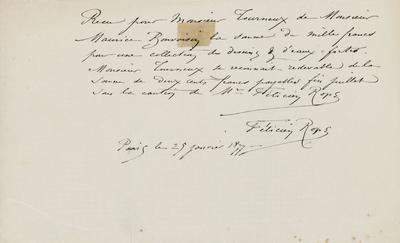 Recu pour Monsieur Tourneux de Monsieur
Maurice Bonvoisin la somme de mille francs
pour une collection de dessins & d'eaux-fortes.
Monsieur Tourneux se reconnait redevable de la
somme de deux cents francs payables fin juillet
sur la caution de Mr Félicien Rops
Félicien Rops
Paris le 25 janvier